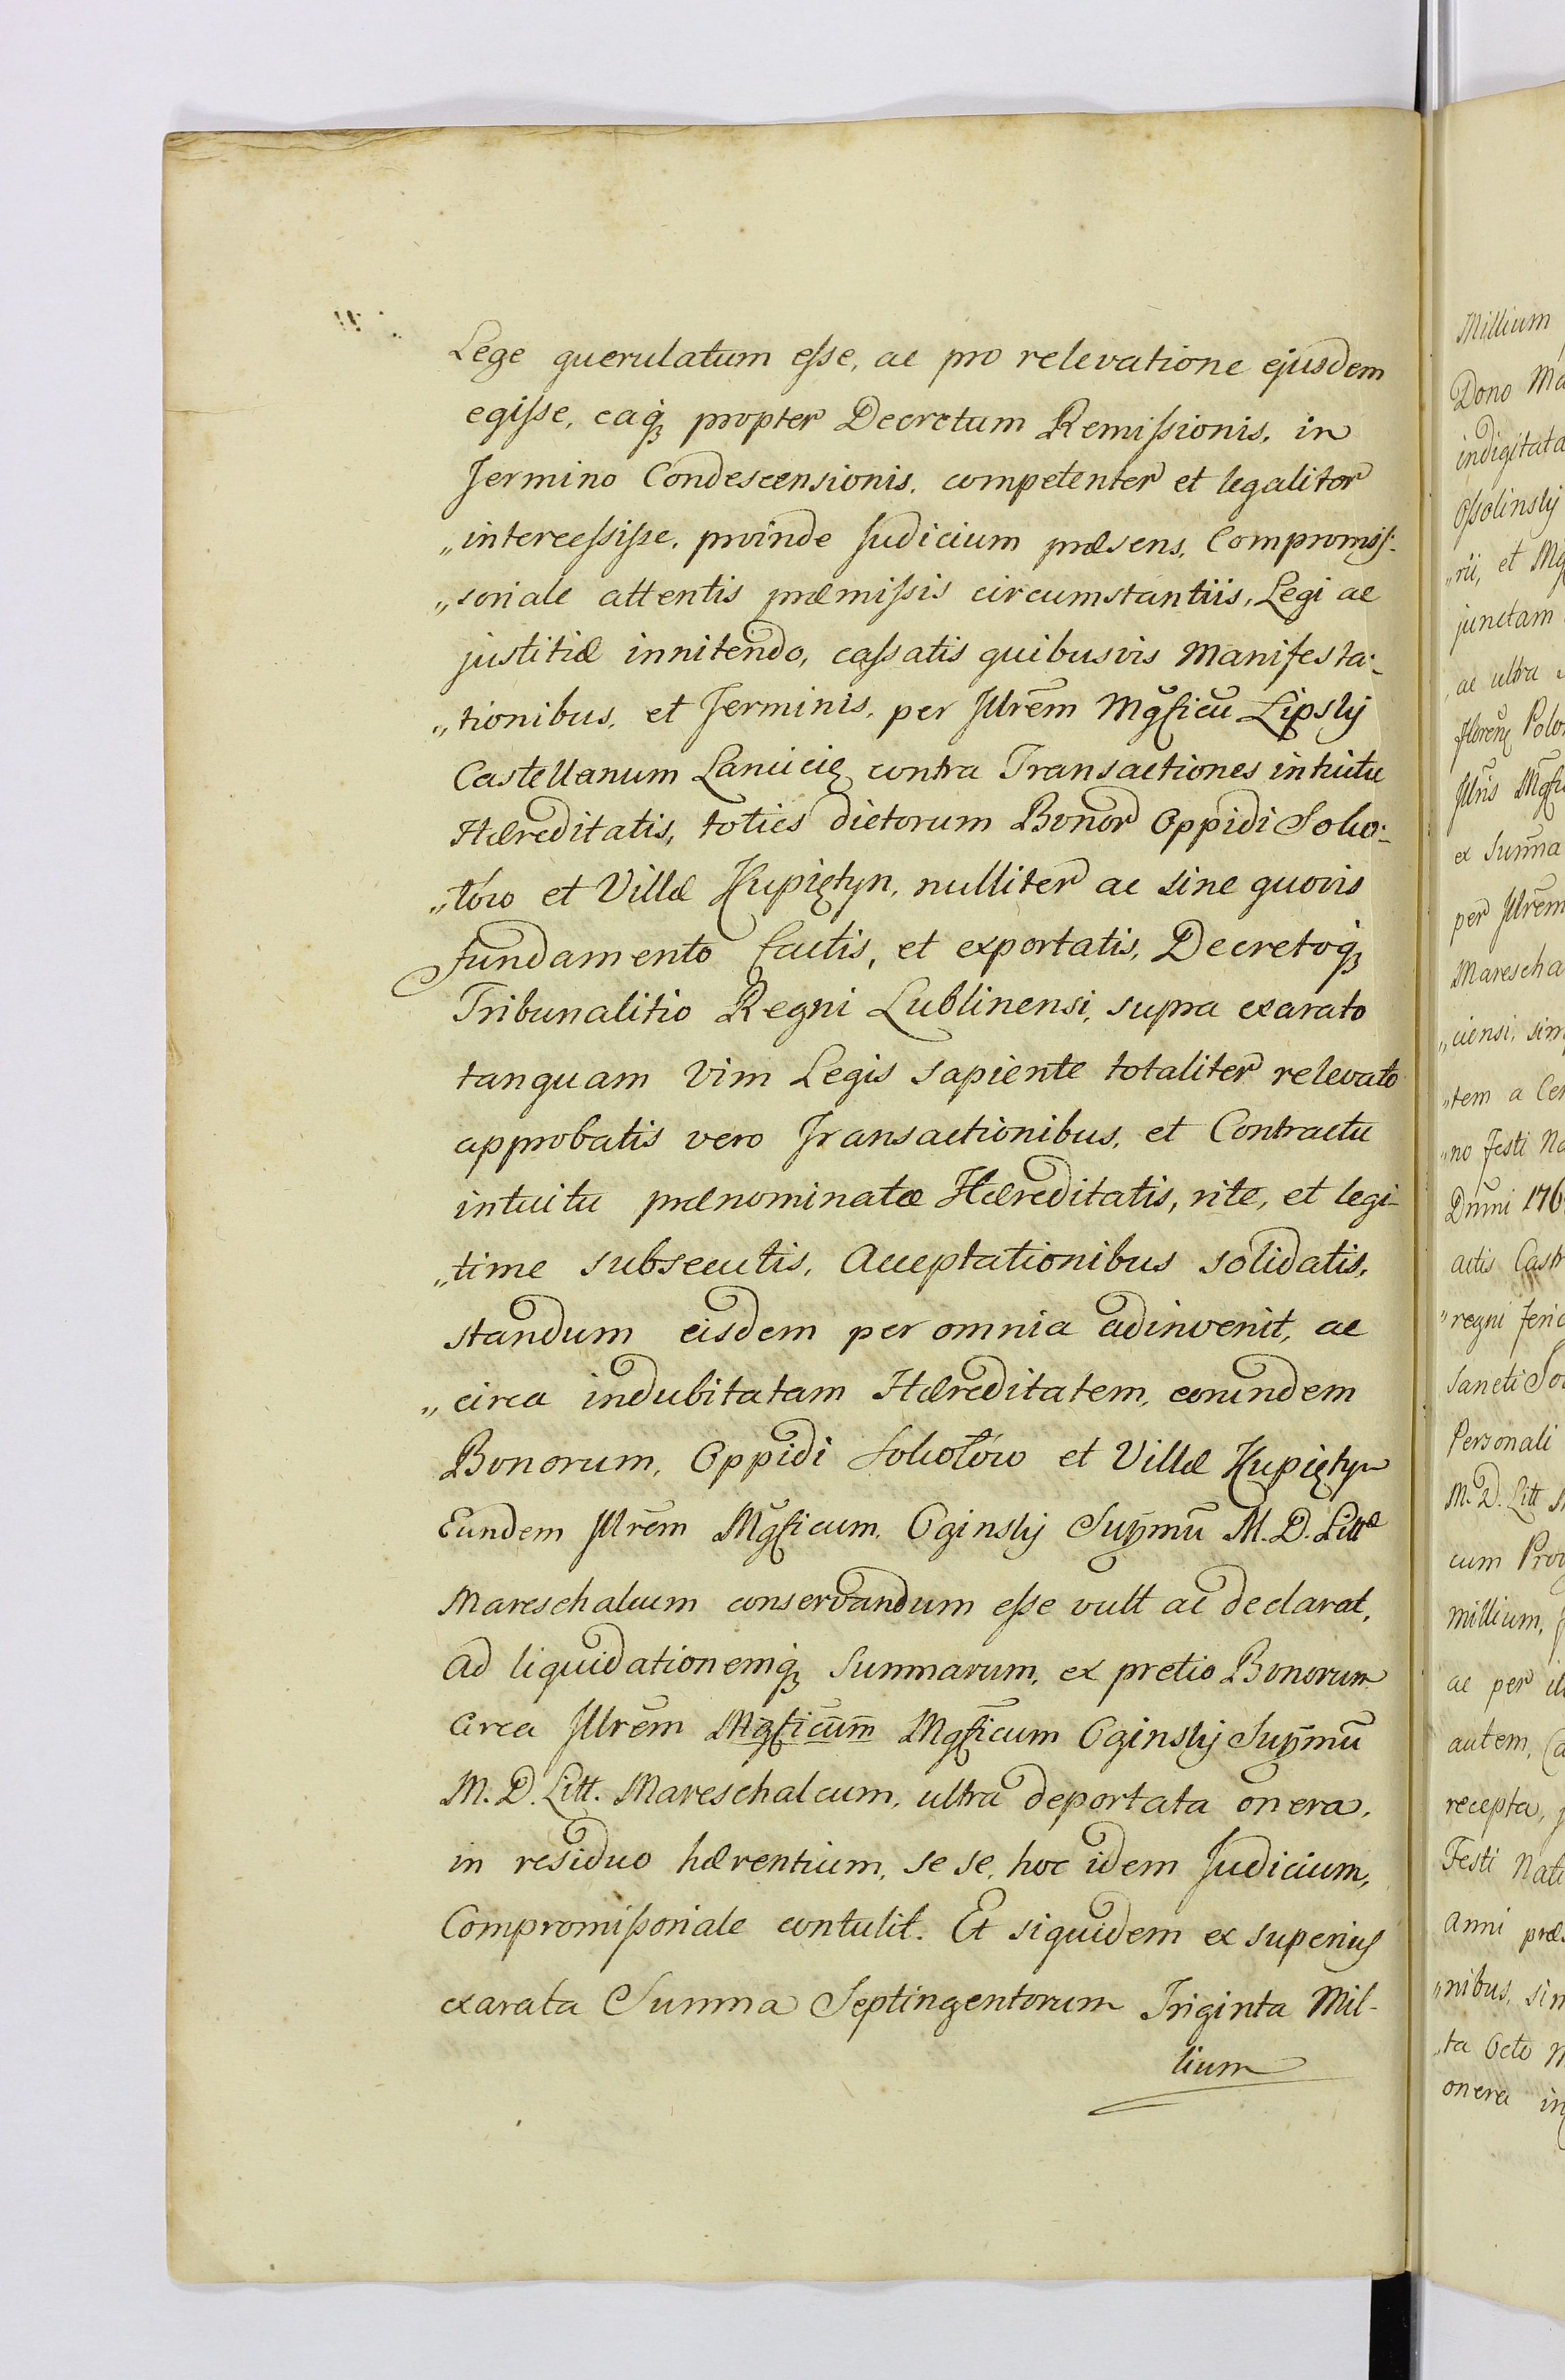 Lege querulatum eſse, ac pro relevatione ejusdem
egiſse, eaq̃ propter Decretum Remiſsionis, in
Termino Condescensionis, competenter et legaliter
„interceſsiſse, proinde Judicium præsens, Compromiſ-
„soriale attentis præmiſsis circumstantiis, Legi ac
justitiæ innitendo, caſsatis quibusvis Manifesta-
„tionibus, et Terminis, per Illrẽm Mgficũ Lipsky
Castellanum Lancicię contra Transactiones intuitu
Hæreditatis, toties dictorum Bonor Oppidi Soko-
„łów et Villæ Kupiętyn, nulliter ac sine quovis
fundamento factis, et exportatis, Decretoq̃
Tribunalitio Regni Lublinensi, supra exarato
tanquam vim Legis sapiente totaliter relevato
approbatis vero Transactionibus, et Contractu
intuitu prænominatæ Hæreditatis, rite, et legi-
„time subsecutis, Acceptationibus solidatis,
standum eisdem per omnia adinvenit, ac
„circa indubitatam Hæreditatem, eorundem
Bonorum, Oppidi Sokołów et Villæ Kupiętyn
Eundem Illrẽm Mgficum, Oginsky Supmũ M. D. Littæ
Mareschalcum conservandum eſse vult ac declarat,
ad liquidationemq̃ Summarum, ex pretio Bonorum
circa Illrẽm Mgficum Mgficum Oginsky Supmũ
M. D. Litt. Mareschalcum, ultra deportata onera,
in residuo hærentium, se se, hoc idem Judicium,
Compromiſsoriale contulit. Et siquidem ex superius
exarata Summa Septingentorum Triginta Mil-
lium
Millium
Dono Ma
indigitata
Oſsolinsky
„rii, et Mg
junctam
ac ultra
Polo
Illris Mgfi
ex Sum̃a
per Illrẽm
Marescha
„ciensi, sim
„tem a Cen
„no festi Na
Dnni 176
actis Cast
„regni feri
Sancti So
Personali
M. D. Litt
cum Pro
millium,
ac per il
autem,
recepta,
Festi Nati
Anni præ
„nibus, sin
„ta Octo M
onera in